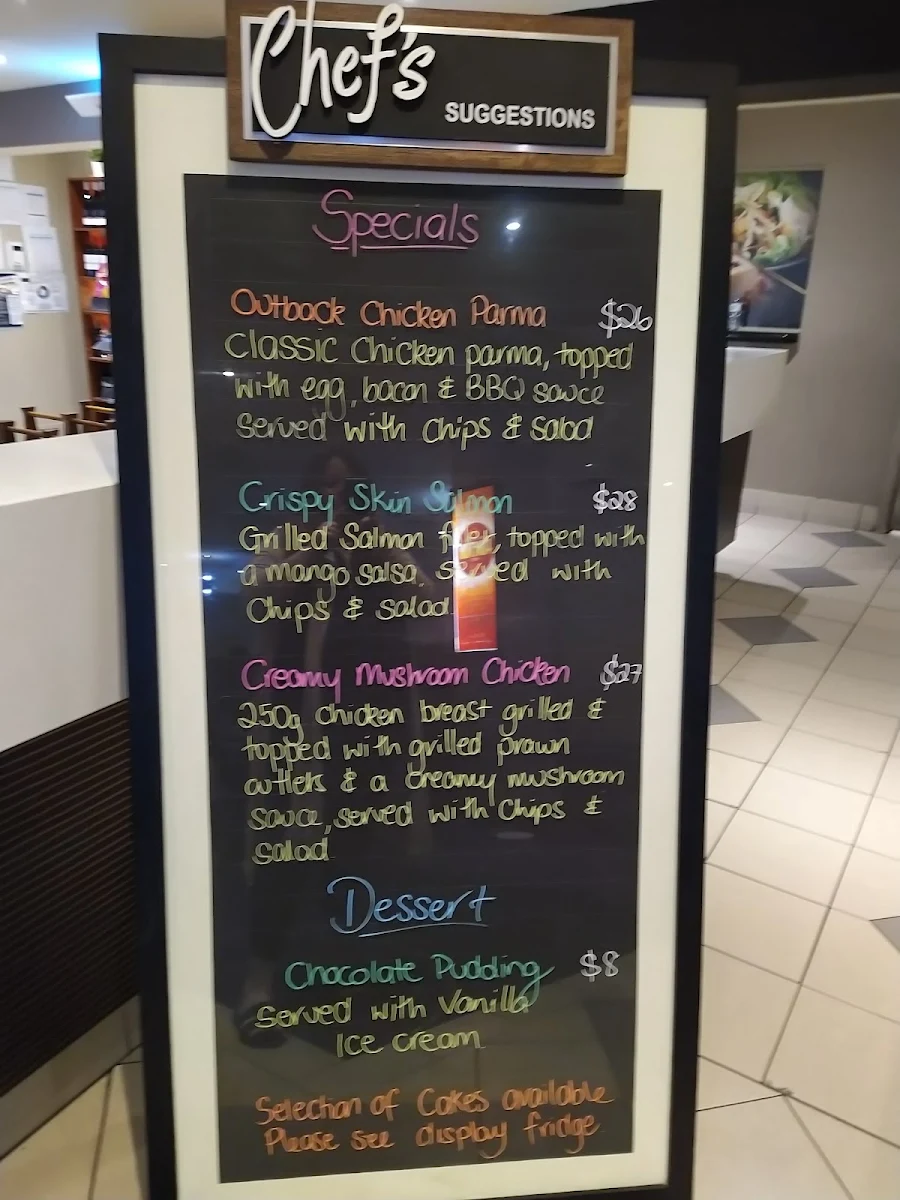 Chef's
SUGGESTIONS
Specials
Outback Chicken Parma $26
Classic Chicken parma, topped
with egg, bacon & BBQ sauce
Served with chips & salad
Crispy Skin Salmon $28
Grilled Salmon filet, topped with
a mango salsa. served with
Chips & salad
Creamy Mushroom Chicken $27
250g chicken breast grilled &
topped with grilled prawn
cutlets & a creamy mushroom
sauce, served with Chips &
Salad
Dessert
Chocolate Pudding $8
Served with Vanilla
Ice cream
Selection of Cakes available
Please see display fridge